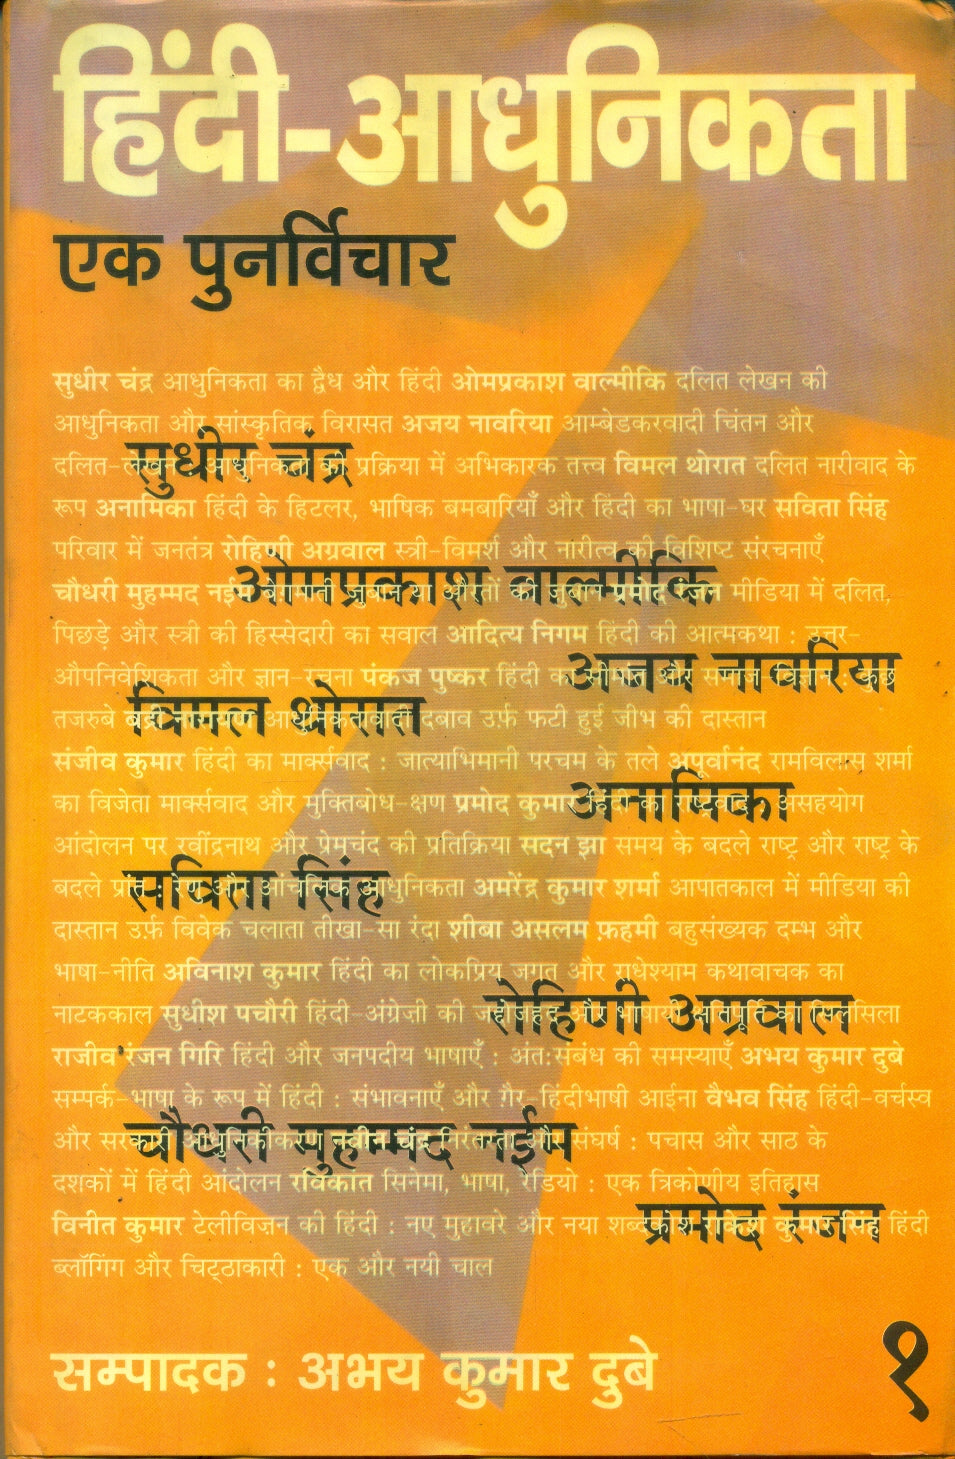 हिंदी-आधुनिकता
एक पुनर्विचार
सुधीर चंद्र आधुनिकता का द्वैध और हिंदी ओमप्रकाश वाल्मीकि दलित लेखन की
आधुनिकता और सांस्कृतिक विरासत अजय नावरिया आम्बेडकरवादी चिंतन और
दलित-लेखन : आधुनिकता की प्रक्रिया में अभिकारक तत्त्व विमल थोरात दलित नारीवाद के
रूप अनामिका हिंदी के हिटलर, भाषिक बमबारियाँ और हिंदी का भाषा-घर सविता सिंह
परिवार में जनतंत्र रोहिणी अग्रवाल स्त्री-विमर्श और नारीत्व की विशिष्ट संरचनाएँ
चौधरी मुहम्मद नईम बेगमाती जुबान या औरतों की जुबान प्रमोद रंजन मीडिया में दलित,
पिछड़े और स्त्री की हिस्सेदारी का सवाल आदित्य निगम हिंदी की आत्मकथा : उत्तर-
औपनिवेशिकता और ज्ञान-रचना पंकज पुष्कर हिंदी का सीमांत और समाज-विज्ञान : कुछ
तजरुबे बद्री नारायण आधुनिकतावादी दबाव उर्फ़ फटी हुई जीभ की दास्तान
संजीव कुमार हिंदी का मार्क्सवाद : जात्याभिमानी परचम के तले अपूर्वानंद रामविलास शर्मा
का विजेता मार्क्सवाद और मुक्तिबोध-क्षण प्रमोद कुमार हिंदी का राष्ट्रवाद : असहयोग
आंदोलन पर रवींद्रनाथ और प्रेमचंद की प्रतिक्रिया सदन झा समय के बदले राष्ट्र और राष्ट्र के
बदले प्रांत : रेणु और आंचलिक आधुनिकता अमरेंद्र कुमार शर्मा आपातकाल में मीडिया की
दास्तान उर्फ़ विवेक चलाता तीखा-सा रंदा शीबा असलम फ़हमी बहुसंख्यक दम्भ और
भाषा-नीति अविनाश कुमार हिंदी का लोकप्रिय जगत और राधेश्याम कथावाचक का
नाटककाल सुधीश पचौरी हिंदी-अंग्रेज़ी की जद्दोजहद और भाषायी क्षतिपूर्ति का सिलसिला
राजीव रंजन गिरि हिंदी और जनपदीय भाषाएँ : अंत:संबंध की समस्याएँ अभय कुमार दुबे
सम्पर्क-भाषा के रूप में हिंदी : संभावनाएँ और ग़ैर-हिंदीभाषी आईना वैभव सिंह हिंदी-वर्चस्व
और सरकारी आधुनिकीकरण नवीन चंद्र निरंतरता और संघर्ष : पचास और साठ के
दशकों में हिंदी आंदोलन रविकांत सिनेमा, भाषा, रेडियो : एक त्रिकोणीय इतिहास
विनीत कुमार टेलीविज़न की हिंदी : नए मुहावरे और नया शब्दकोश राकेश कुमार सिंह हिंदी
ब्लॉगिंग और चिट्ठाकारी : एक और नयी चाल
सुधीर चंद्र
ओमप्रकाश वाल्मीकि
अजय नावरिया
विमल थोरात
अनामिका
सविता सिंह
रोहिणी अग्रवाल
चौधरी मुहम्मद नईम
प्रमोद रंजन
सम्पादक : अभय कुमार दुबे
१